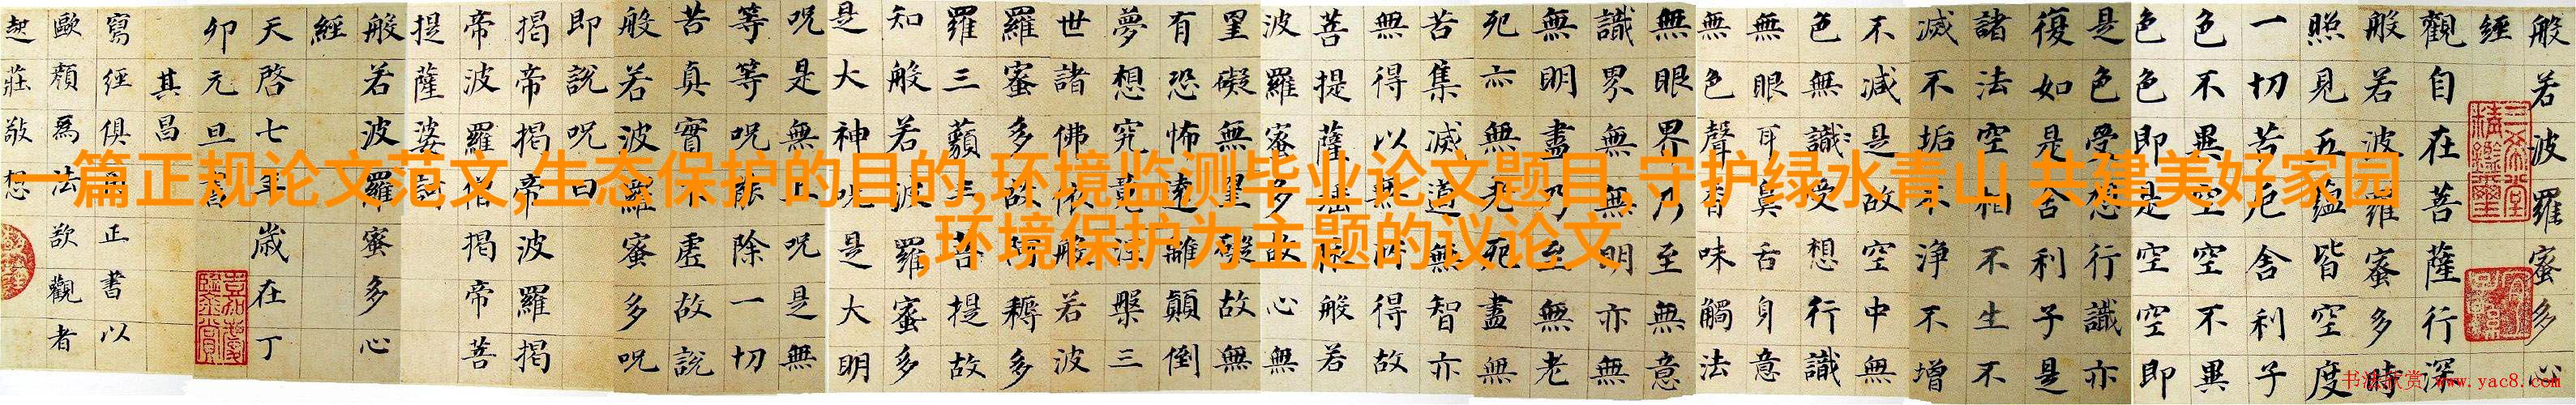 一篇正规论文范文,生态保护的目的,环境监测毕业论文题目,守护绿水青山 共建美好家园
,环境保护为主题的议论文
般若波羅蜜多心
經
觀自在菩薩行深
般若波羅蜜多時
照見五蘊皆空度
一切苦厄舍利子
色不異空空不異
色色即是空空即
是色受想行識亦
復如是舍利子是
諸法空相不生不
滅不垢不淨不增
不減是故空中無
色無識受想行識
無眼耳鼻舌身意
無色聲香味觸法
無眼界乃至無意
識界無無明亦無
無明盡乃至無老
死亦無老死盡無
苦集滅道無智亦
無得以無所得故
菩提薩埵依般若
波羅蜜多故心無
罣礙無罣礙故無
有恐怖遠離顛倒
夢想究竟涅槃三
世諸佛依般若波
羅蜜多故得耨多
羅三藐三菩提故
知般若波羅蜜多
是大神呪是大明
呪是無上呪是無
等等呪能除一切
苦真實不虛故說
般若波羅蜜多呪
即說呪曰
揭帝揭帝波羅揭
帝波羅僧揭帝菩
提薩婆訶
般若波羅蜜多心
經
天啓七年歲在丁
卯元旦書
其昌
寫經俱爲正書以
歐顏爲法欲觀者
起莊敬想
书法欣赏 www.yac8.com